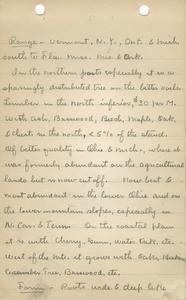 Range - Vermont, N.Y., Ont. & Mich
south to Fla. Miss. Mo. & Ark.
In the northern parts especially it is a
sparingly distributed tree on the better soils.
Lumber in the North inferior, $20 per M.
With Ash, Basswood, Beech, Maple, Oak,
& Chest. in the north, < 5% of the stand.
Of better quality in Ohio & Mich., where it
was formerly abundant on the agricultural
lands but is now cut off. Now best &
most abundant in the lower Ohio and on
the lower mountain slopes, especially in
N. Car. & Tenn. On the coastal plain
it is with Cherry, Gum, Water Oak, etc.
West of the Mts. it grows with Oaks,
Cucumber Tree, Basswood, etc.
Form - Roots wide & deep